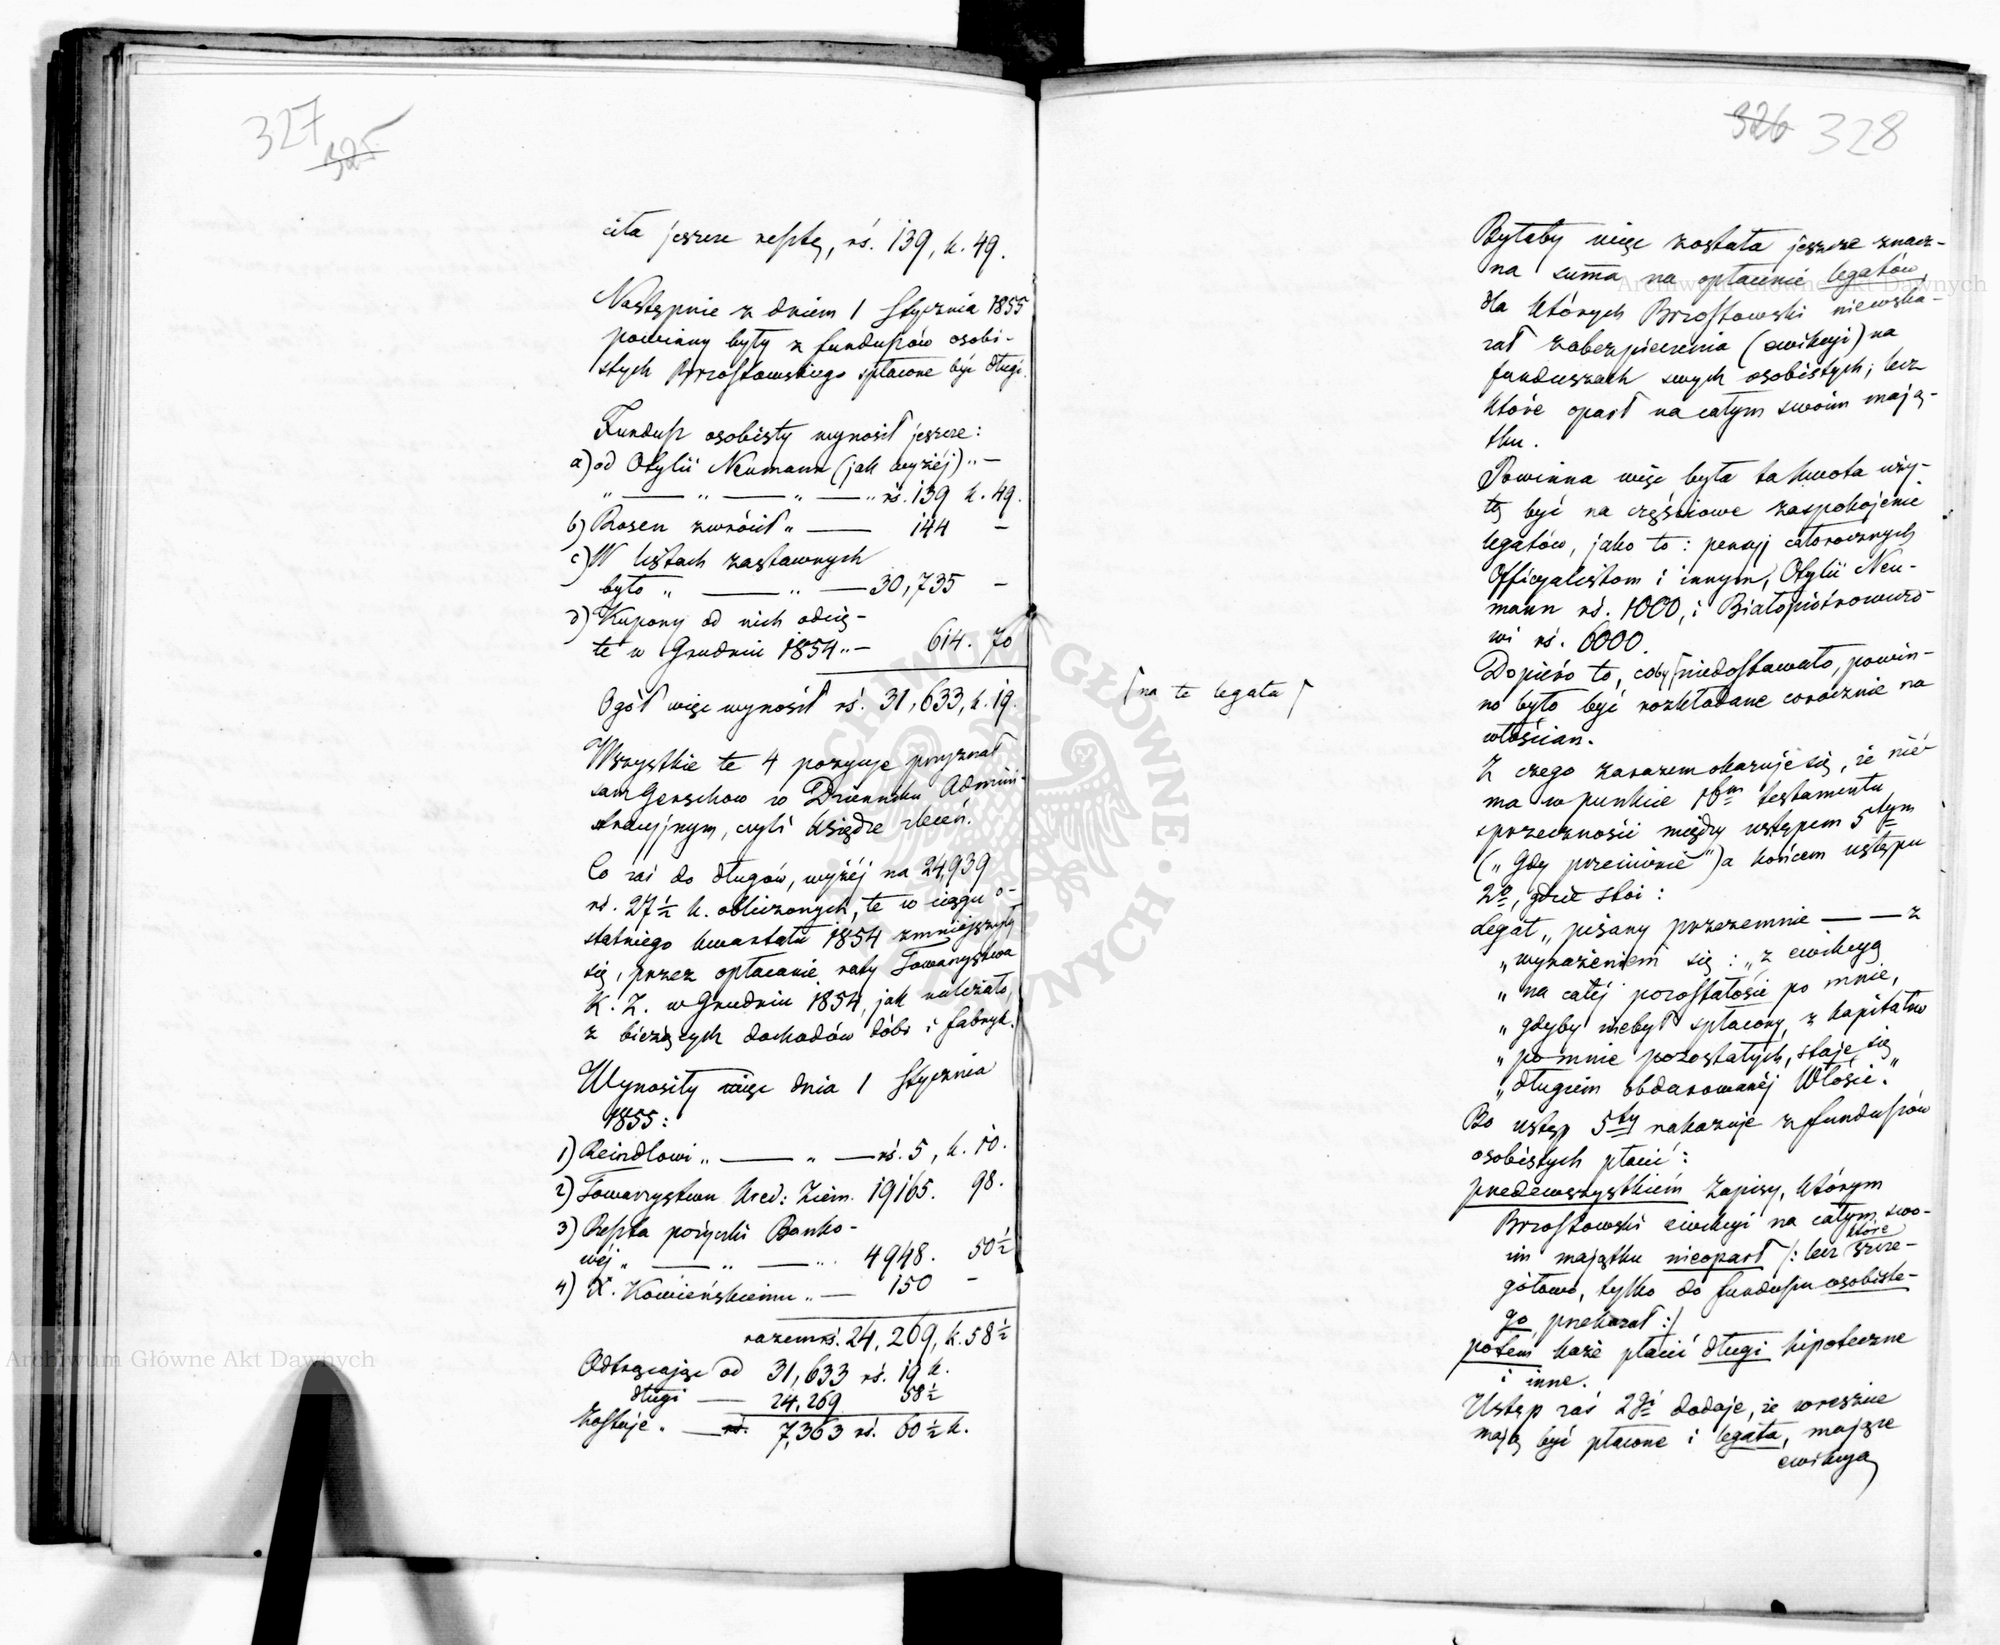 327
325
ciła jeszcze resztę, rś. 139, k. 49.
Następnie z dniem 1 Stycznia 1855
powinny były z funduszów osobi-
stych Brzostowskiego spłacone być długi.
Fundusz osobisty wynosił jeszcze:
a) od Otylii Neumann (jak wyżéj) „ —
„ — „ — „ — „ rś. 139 k. 49.
b) Rosen zwrócił „ — 144 —
c) W listach zastawnych
było „ — „ — 30,735 —
d) Kupony od nich odcię-
te w Grudniu 1854 „ — 614. 70
Ogół więc wynosił rś. 31,633, k. 19.
Wszystkie te 4 pozycje przyznał
sam Gerschow w Dzienniku Admini-
stracyjnym, czyli księdze zleceń.
Co zaś do długów, wyżéj na 24,939
rś. 27½ k. obliczonych, te w ciągu o-
statniego kwartału 1854 zmniejszyły
się, przez opłacanie raty Towarzystwa
K. Z. w Grudniu 1854, jak należało,
z bieżących dochodów dóbr i fabryk.
Wynosiły więc dnia 1 Stycznia
1855:
1) Reindlowi „ — „ — rś. 5, k. 10.
2) Towarzystwu Kred: Ziem. 19165. 98.
3) Reszta pożyczki Banko-
wéj „ — „ — „ 4948. 50½
4) X. Kowieńskiemu „ — 150 —
razem rś. 24,269, k. 58½
Odtrącając od 31,633 rś. 19 k.
długi — 24,269 58½
Zostaje „ — rś. 7,363 rś. 60½ k.
326 328
Byłaby więc została jeszcze znacz-
na summa na opłacenie legatów,
dla których Brzostowski niewska-
zał zabezpieczenia (ewikcyi) na
funduszach swych osobistych; lecz
które oparł na całym swoim mają-
tku.
Powinna więc była ta kwota uży-
tą być na częściowe zaspokojenie
legatów, jako to: pensyj całorocznych
Officyalistom i innym, Otylii Neu-
mann rś. 1000, i Białopiotrowiczo-
wi rś. 6000.
Dopiéro to, coby ⌈niedostawało, powin-
⌈na te legata⌈
no było być rozkładane corocznie na
włościan.
Z czego zarazem okazuje się, że nié-
ma w punkcie 16m testamentu
sprzeczności między ustępem 5tym
(„Gdy przeciwnie”) a końcem ustępu
2o, gdzie stoi:
Legat „pisany przezemnie — — z
„wyrażeniem się: „z ewikcyą
„na całéj pozostałości po mnie,
„gdyby niebył spłacony, z kapitałów
„po mnie pozostałych, staje się
„długiem obdarowanéj Włości.”
Bo ustęp 5ty nakazuje z funduszów
osobistych płacić:
przedewszystkiém zapisy, którym
Brzostowski ewikcyi na całym swo-
im majątku nieoparł /: lecz które szcze-
gółowo, tylko do funduszu osobiste-
go przekazał :/
potém każe płacić długi hipoteczne
i inne.
Ustęp zaś 2gi dodaje, że wreszcie
mają być płacone i legata, mające
ewikcyą
Archiwum Główne Akt Dawnych
Archiwum Główne Akt Dawnych